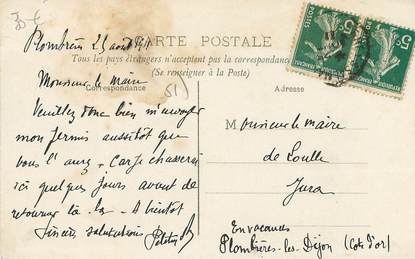 Plombières 25 août 1911
CARTE POSTALE
Tous les pays étrangers n'acceptent pas la correspondance
(Se renseigner à la Poste)
Correspondance
Adresse
Monsieur le Maire
Veuillez donc bien m'envoyer
mon permis aussitôt que
vous l'aurez - Car je chasserai
ici quelques jours avant de
retourner là-bas - A bientôt
Sincères salutations
Monsieur le maire
de Loulle
Jura
En vacances
Plombières-les-Dijon (Côte d'or)
5c
5c